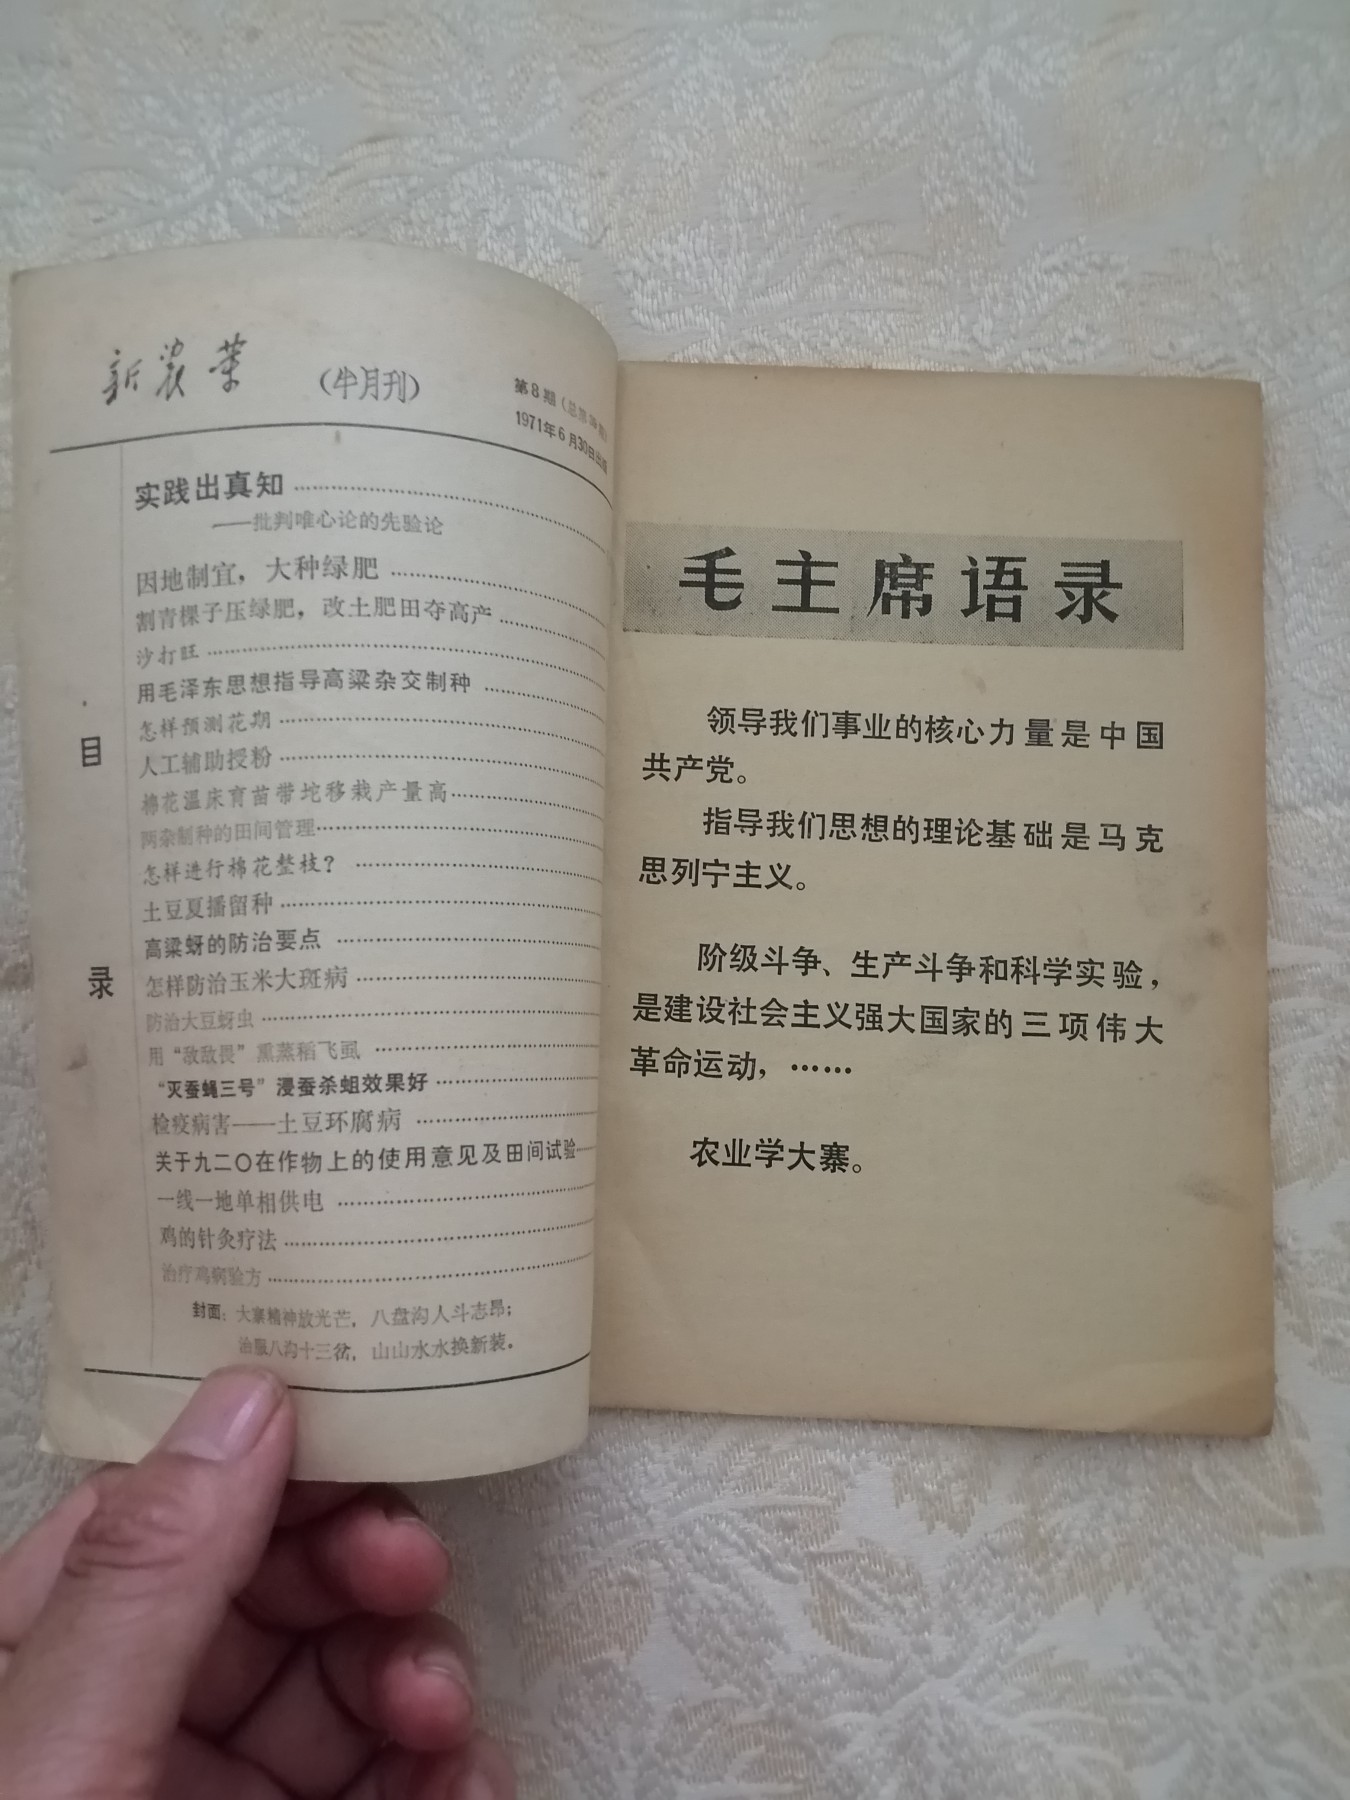 新农业 （半月刊）
第8期（总第
1971年6月30日出版
目录
实践出真知
——批判唯心论的先验论
因地制宜，大种绿肥
割青棵子压绿肥，改土肥田夺高产
沙打旺
用毛泽东思想指导高粱杂交制种
怎样预测花期
人工辅助授粉
棉花温床育苗带坨移栽产量高
两杂制种的田间管理
怎样进行棉花整枝？
土豆夏播留种
高粱蚜的防治要点
怎样防治玉米大斑病
防治大豆蚜虫
用“敌敌畏”熏蒸稻飞虱
“灭蚕蝇三号”浸蚕杀蛆效果好
检疫病害——土豆环腐病
关于九二〇在作物上的使用意见及田间试验
一线一地单相供电
鸡的针灸疗法
治疗鸡病验方
封面：大寨精神放光芒，八盘沟人斗志昂；
治服八沟十三岔，山山水水换新装。
毛主席语录
领导我们事业的核心力量是中国
共产党。
指导我们思想的理论基础是马克
思列宁主义。
阶级斗争、生产斗争和科学实验，
是建设社会主义强大国家的三项伟大
革命运动，……
农业学大寨。